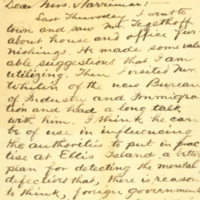 Dear Mrs. Harriman:
Last Thursday I went to
town and saw Mr. Tegethoff
about house and office fur-
nishings. He made some valu-
able suggestions that I am
utilizing. Then I visited Mr.
Whitin of the new Bureau
of Industry and Immigra-
tion and had a long talk
with him. I think he can
be of use in influencing
the authorities to put in prac-
tise at Ellis Island a better
plan for detecting the mental
defectives that, there is reason
to think, foreign governments